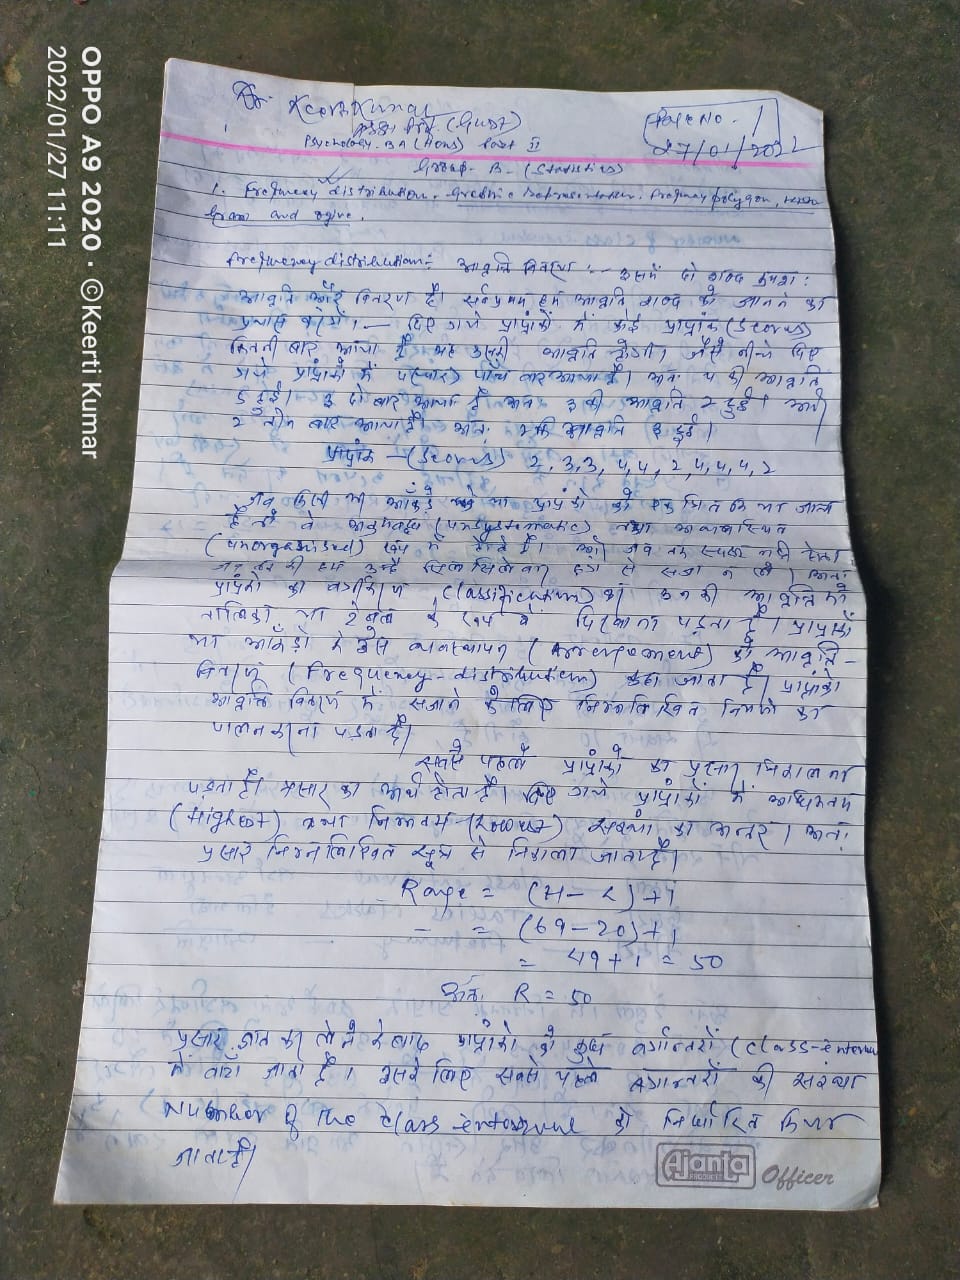 OPPO A9 2020 · ©Keerti Kumar
2022/01/27 11:11
Dr. Keerti Kumar
Asstt Prof. (Guest)
Psychology. BA (Hons) Part II
Group - B - (Statistics)
Page No. 1
27/01/2022
1. Frequency distribution. Graphic Representation. Frequency polygon,
gram and ogive.
Frequency distribution: आवृत्ति वितरण :- इसमें दो शब्द क्रमशः
आवृत्ति और वितरण है। सर्वप्रथम हम आवृत्ति शब्द को जानने का
प्रयास करेंगे। - दिए गये प्राप्तांकों में कोई प्राप्तांक (Scores)
कितनी बार आया है यह उसकी आवृत्ति होगी। जैसे नीचे दिए
गये प्राप्तांकों में 4 (चार) पाँच बार आया है। अतः 4 की आवृत्ति
5 हुई। 3 दो बार आया है अतः 3 की आवृत्ति 2 हुई। और
2 तीन बार आया है। अतः 2 की आवृत्ति 3 हुई।
प्राप्तांक - (Scores) 2, 3, 3, 4, 4, 2 4, 4, 4, 2
जब किसी भी आँकड़े या प्राप्तांकों को एकत्रित किया जाता
है तो वे (unsystematic) तथा अव्यवस्थित
(unorganised) रूप में होते हैं। अर्थ तब तक स्पष्ट नहीं होता
जब तक की हम उन्हें सिलसिलेवार ढंग से सजा न लें। अतः
प्राप्तांकों का वर्गीकरण (Classification) कर उनकी आवृत्ति को
तालिका या टेबल के रूप में दिखाना पड़ता है। प्राप्तांकों
या आँकड़ों के इस व्यवस्थापन (Arrangement) को आवृत्ति-
वितरण (Frequency-distribution) कहा जाता है। प्राप्तांकों
आवृत्ति वितरण में सजाने के लिए निम्नलिखित नियमों का
पालन करना पड़ता है।
सबसे पहले प्राप्तांकों का प्रसार निकालना
पड़ता है। प्रसार का अर्थ होता है। दिए गये प्राप्तांकों में अधिकतम
(Highest) तथा निम्नतम (Lowest) संख्या का अन्तर। अतः
प्रसार निम्नलिखित सूत्र से निकाला जाता है।
Range = (H - L) + 1
= (69 - 20) + 1
= 49 + 1 = 50
अतः R = 50
प्रसार ज्ञात कर लेने के बाद प्राप्तांकों को कुछ वर्गान्तरों (class-interval
में बाँटा जाता है। इसके लिए सबसे पहले वर्गान्तरों की संख्या
Number of the class interval को निर्धारित किया
जाता है।
Ajanta Officer